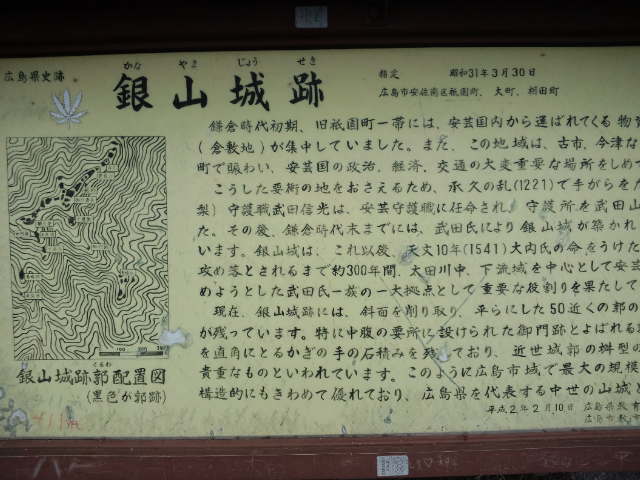 広島県史跡
かな やま じょう せき
銀山城跡
指定 昭和31年3月30日
広島市安佐南区祇園町、大町、相田町
鎌倉時代初期、旧祇園町一帯には、安芸国内から運ばれてくる物資
(倉敷地)が集中していました。また、この地域は、古市、今津な
町で賑わい、安芸国の政治、経済、交通の大変重要な場所をしめて
こうした要衝の地をおさえるため、承久の乱(1221)で手がらをた
梨)守護職武田信光は、安芸守護職に任命され、守護所を武田山
た。その後、鎌倉時代末までには、武田氏により銀山城が築かれ
います。銀山城は、これ以後、天文10年(1541)大内氏の命をうけた
攻め落とされるまで約300年間、太田川中、下流域を中心として安芸
めようとした武田氏一族の一大拠点として重要な役割りを果たして
現在、銀山城跡には、斜面を削り取り、平らにした50近くの郭の
が残っています。特に中腹の要所に設けられた御門跡とよばれる
を直角にとるかぎの手の石積みを残しており、近世城郭の桝型の
貴重なものといわれています。このように広島市域で最大の規模
構造的にもきわめて優れており、広島県を代表する中世の山城
平成2年2月10日 広島県教育
広島市教
くるわ
銀山城跡郭配置図
(黒色が郭跡)